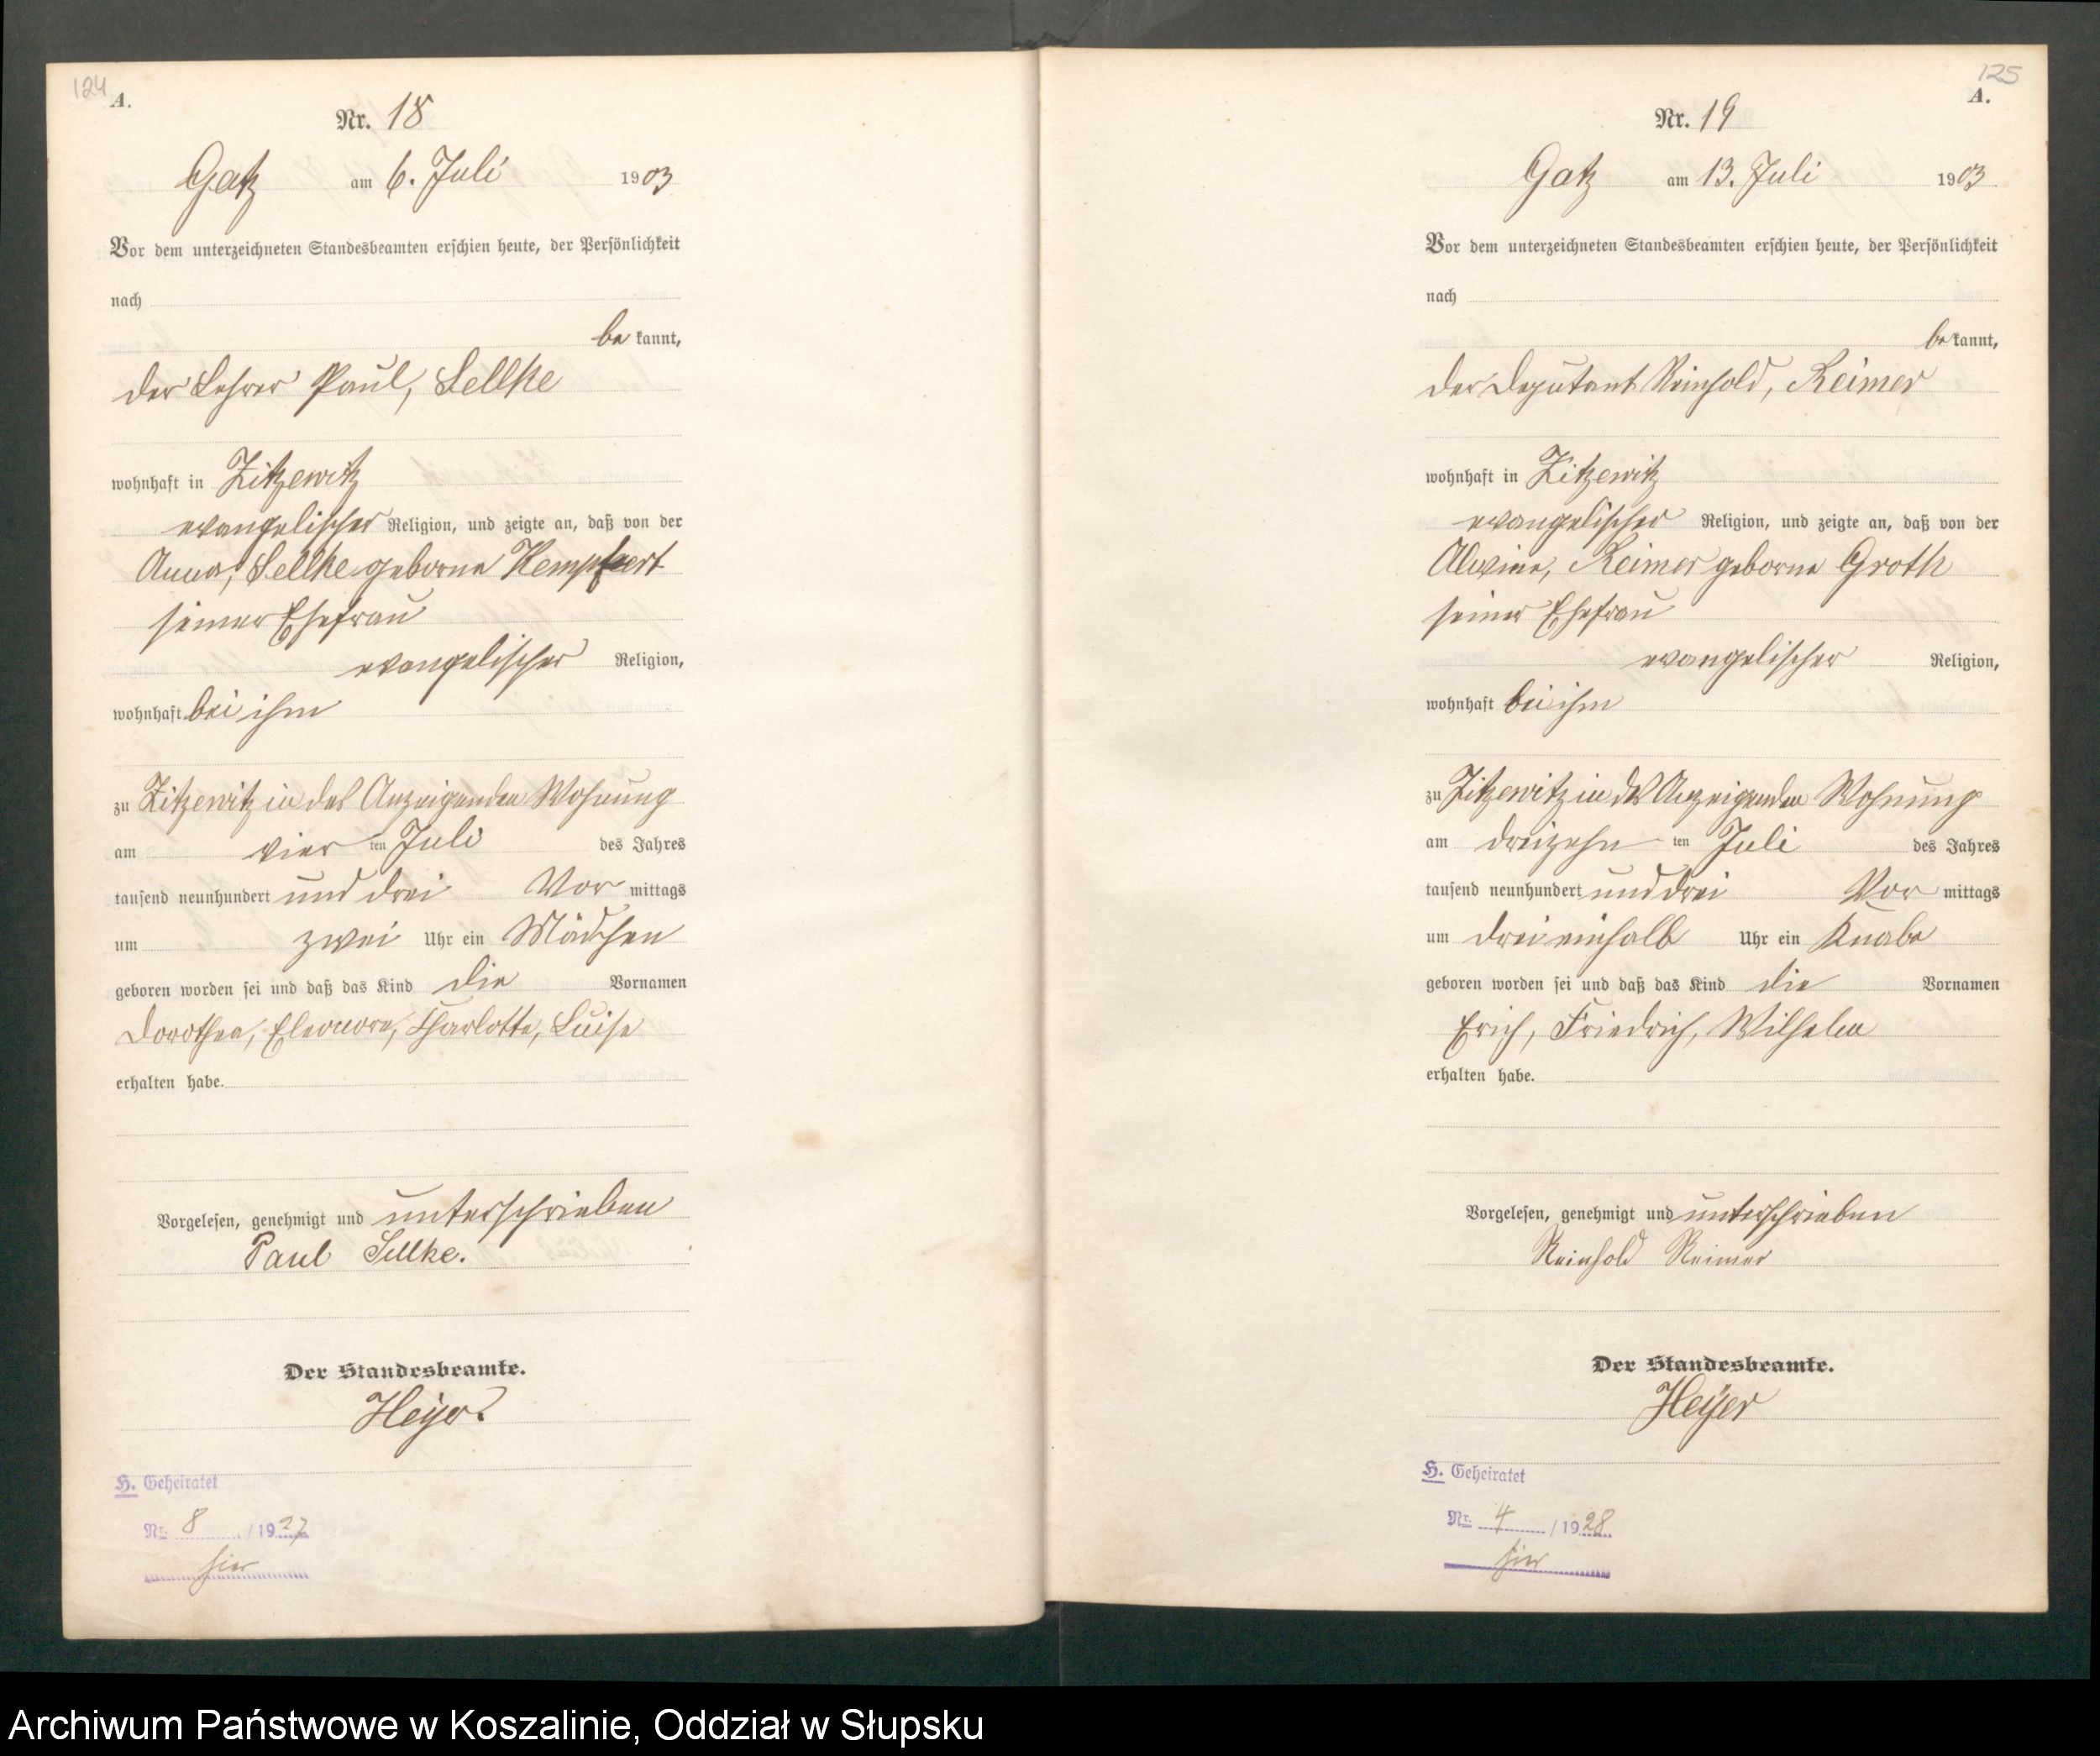 124
A.
Nr. 18
Gatz am 6. Juli 1903
Vor dem unterzeichneten Standesbeamten erschien heute, der Persönlichkeit
nach
be kannt,
der Lehrer Paul, Sellke
wohnhaft in Zitzewitz
evangelischer Religion, und zeigte an, daß von der
Anna, Sellke geborne Kempfert
seiner Ehefrau
evangelischer Religion,
wohnhaft bei ihm
zu Zitzewitz in des Anzeigenden Wohnung
am vier ten Juli des Jahres
tausend neunhundert und drei Vor mittags
um zwei Uhr ein Mädchen
geboren worden sei und daß das Kind die Vornamen
Dorothea, Eleonore, Charlotte, Luise
erhalten habe.
Vorgelesen, genehmigt und unterschrieben
Paul Sellke.
Der Standesbeamte.
Heyer
H. Geheiratet
Nr. 8 / 1927
hier
125
A.
Nr. 19
Gatz am 13. Juli 1903
Vor dem unterzeichneten Standesbeamten erschien heute, der Persönlichkeit
nach
be kannt,
der Deputant Reinhold, Reimer
wohnhaft in Zitzewitz
evangelischer Religion, und zeigte an, daß von der
Alwine, Reimer geborne Groth
seiner Ehefrau
evangelischer Religion,
wohnhaft bei ihm
zu Zitzewitz in des Anzeigenden Wohnung
am dreizehn ten Juli des Jahres
tausend neunhundert und drei Vor mittags
um drei einhalb Uhr ein Knabe
geboren worden sei und daß das Kind die Vornamen
Erich, Friedrich, Wilhelm
erhalten habe.
Vorgelesen, genehmigt und unterschrieben
Reinhold Reimer
Der Standesbeamte.
Heyer
H. Geheiratet
Nr. 4 / 1928
hier
Archiwum Państwowe w Koszalinie, Oddział w Słupsku